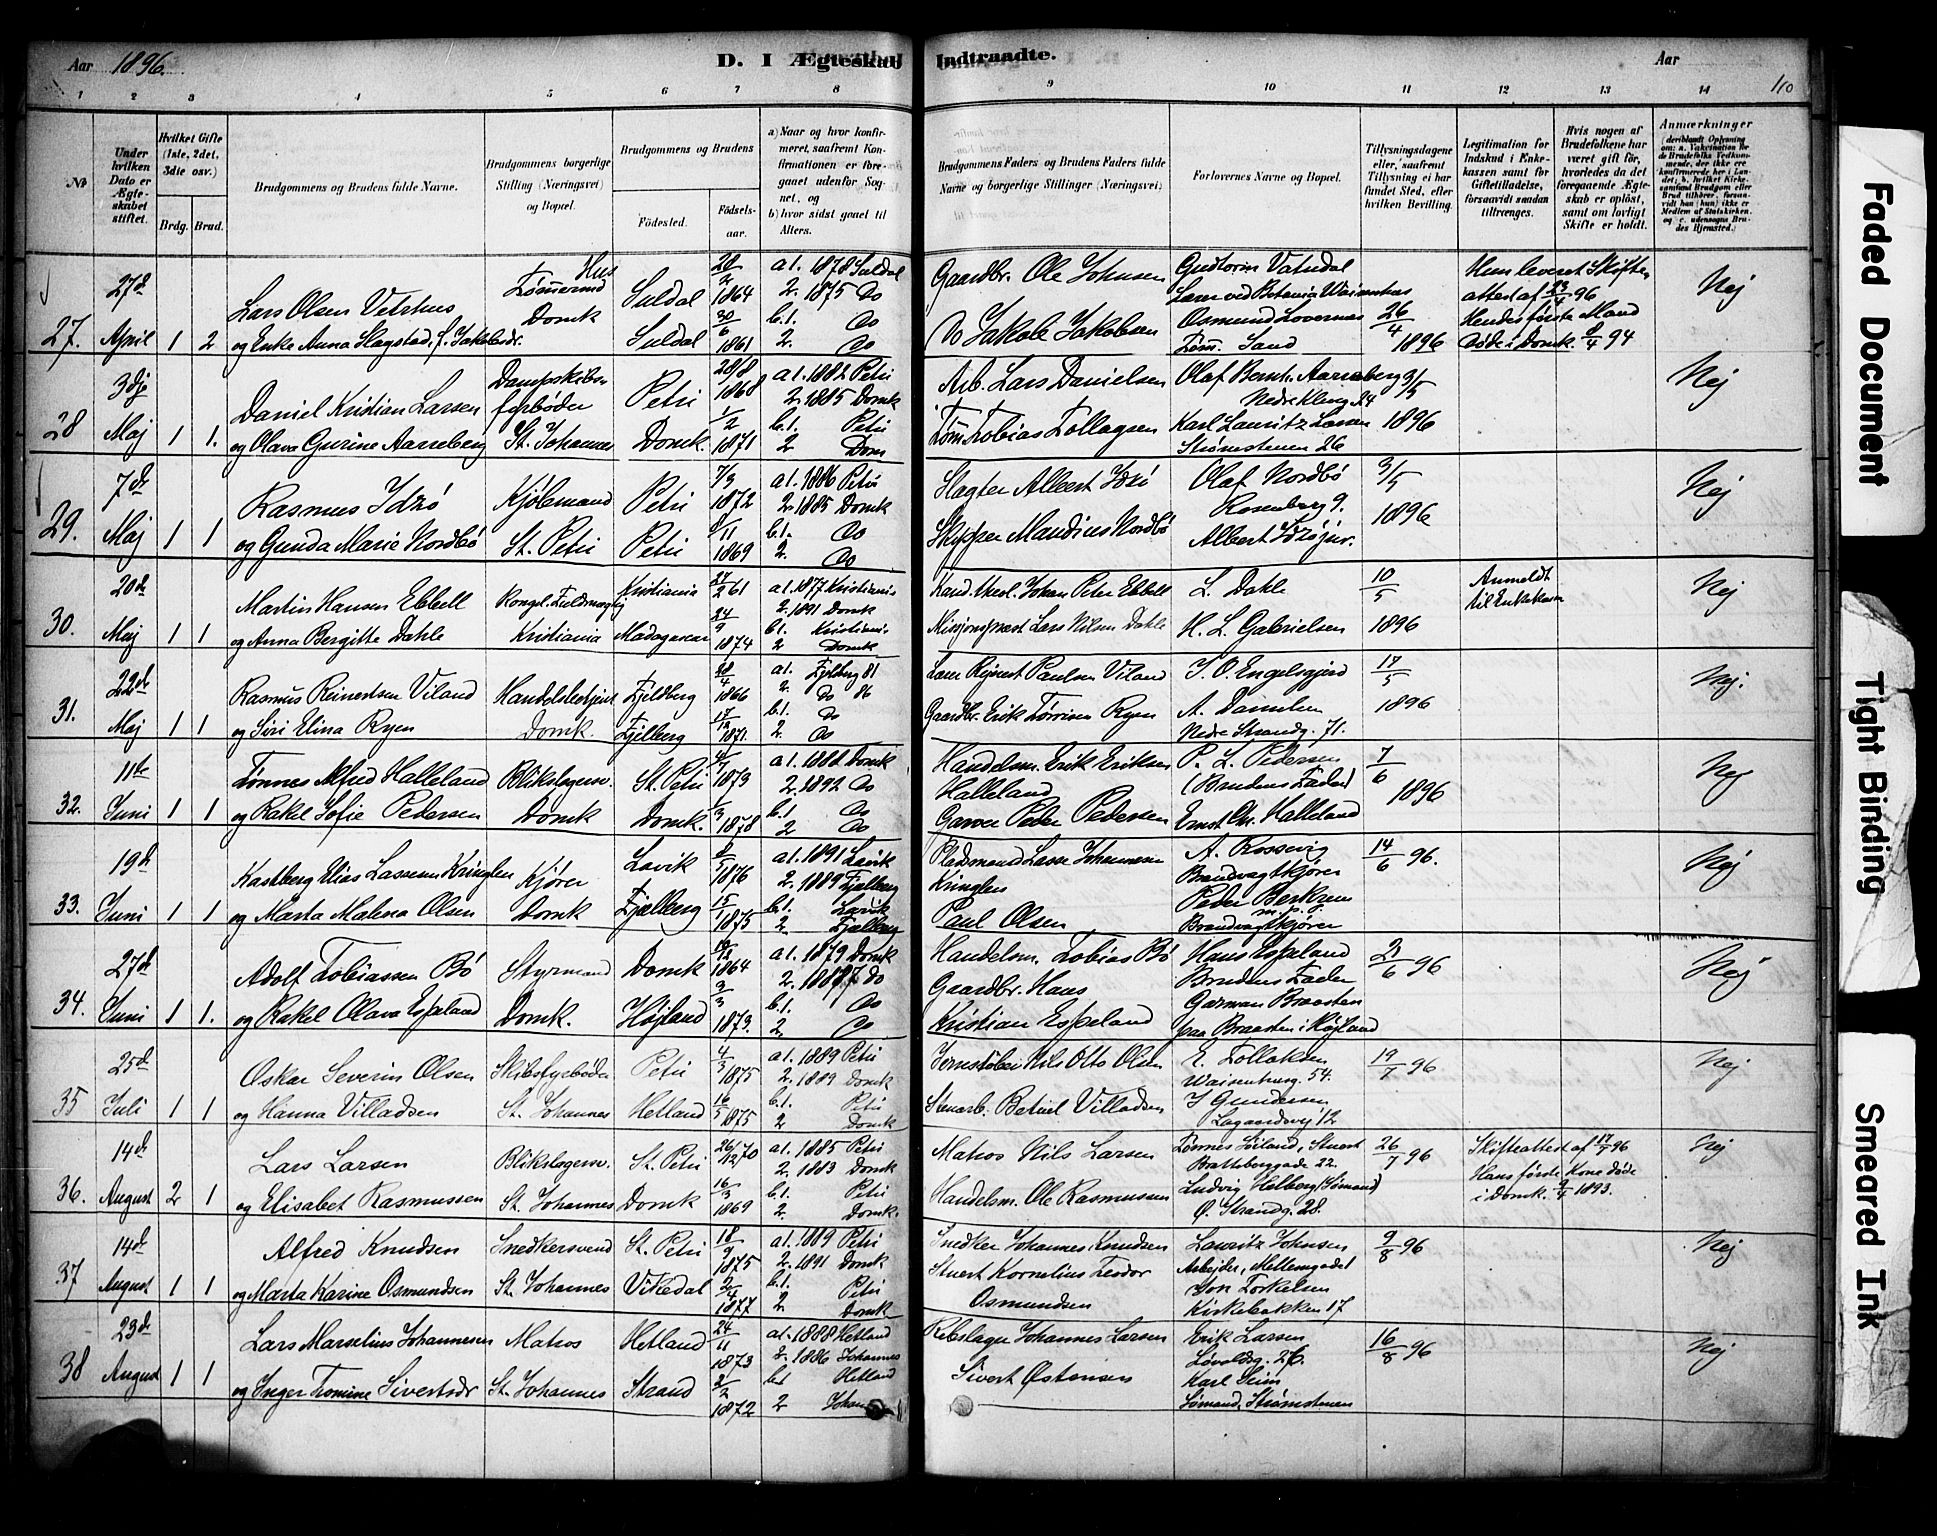 Aar 1896.
D. I Ægteskab Indtraadte.
Aar
110
1 2 3 4 5 6 7 8 9 10 11 12 13 14
№
Under hvilken Dato er Ægteskabet stiftet.
Hvilket Gifte (1ste, 2det, 3die osv.)
Brdg. Brud.
Brudgommens og Brudens fulde Navne.
Brudgommens borgerlige Stilling (Næringsvei) og Bopæl.
Brudgommens og Brudens
Fødested.
Fødsels-aar.
a) Naar og hvor konfirmeret, saafremt Konfirmationen er foregaaet udenfor Sognet, og
b) hvor sidst gaaet til Alters.
Brudgommens Faders og Brudens Faders fulde Navne og borgerlige Stillinger (Næringsvei)
Forlovernes Navne og Bopæl.
Tillysningsdagene eller, saafremt Tillysning ei har fundet Sted, efter hvilken Bevilling.
Legitimation for Indskud i Enkekassen samt for Giftetilladelse, forsaavidt saadan tiltrænges.
Hvis nogen af Brudefolkene har været gift før, hvorledes da det foregaaende Ægteskab er opløst, samt om lovligt Skifte er holdt.
Anmærkninger
27. 27d April 1 2
Lars Olsen Vetrhus
og Enke Anna Slagstad, f. Jakobsdr.
Hus Tømmermd Domk
Suldal 28/2 1864
Suldal 30/6 1861
a 1. 1878 Suldal
2. 1875 Do
b. 1. Do
2. Do
Gaardbr. Ole Johnsen
Do Jakob Jakobsen
Gudtorm Vatndal
Lærer ved Betania Waisenhus
Osmund Lovernes
Tøm. Sand
26/4 1896
Hun leveret Skifte-
attest af 23/4 96
Hendes første Mand
døde i Domk. 94
Nej
28 3dje Maj 1 1.
Daniel Kristian Larsen
og Olava Gurine Aarreberg
Dampskibs-
fyrbøder
St. Johannes
Petri 28/8 1868
Domk. 1/2 1871
a 1. 1882 Petri
2. 1885 Domk
b. 1. Petri
2 Dom
Arb. Lars Danielsen
Tøm. Tobias Tollagsen
Olaf Bernh. Aarreberg
Nedre Kleng. 24
Karl Lauritz Larsen
Strømstenen 26
3/5 1896
Nej
29. 7de Maj 1 1
Rasmus Idsö
og Gunda Marie Nordbö
Kjöbmand
St. Petri
Petri 7/3 1872
Petri 11 1869
a 1. 1886 Petri
2. 1885 Domk
b. 1. Do
2. Do
Slagter Albert Idsö
Skipper Maudius Nordbö
Olaf Nordbö
Rosenberg 9.
Albert Idsö jur.
3/5 1896
Nej
30. 20de Maj 1 1
Martin Hansen Ebbell
og Anna Bergitte Dahle
Kongel. Fuldmægtig
Kristiania
Kristiania 27/2 61
Madagascar 24/9 1874
a 1. 1877 Kristiania
2. 1891 Domk
b 1. Kristiania
2 Domk
Kand. theol. Johan Peter Ebbell
Missjonsprest Lars Nilsen Dahle
L. Dahle
H. L. Gabrielsen
10/5 1896
Anmeldt
til Enkekassen
Nej
31. 22de Maj 1 1
Rasmus Reinertsen Viland
og Siri Elina Ryen
Handelsbetjent
Domk.
Fjeldberg 28/4 1866
Fjelberg 17/12 1871.
a 1. Fjelberg 81
2. Do 86
b. 1. Do
2. Do
Lærer Rejnert Paulsen Viland
Gaardbr. Erik Tørrisen Ryen
J. O. Engelsgjerd
A. Danielsen
Nedre Strandg. 71.
17/5 1896
Nej.
32. 11te Juni 1 1
Tønnes Alfred Halleland
og Rakel Sofie Pedersen
Blikslagersv.
Domk
St. Petri 1873
Domk. 1/3 1878
a 1. 1888 Domk
2. 1892 Do
b. 1 Do
2 Do
Handelsm. Erik Eriksen
Halleland
Garver Peder Pedersen
P. L. Pedersen
(Brudens Fader)
Ernst Chr. Halleland
7/6 1896
Nej
33. 19d Juni 1 1
Kastberg Elias Lassesen Kringlen
og Marta Malena Olsen
Kjører
Domk
Lavik 1876
Fjælberg 15/1 1875
a 1. 1891 Lavik
2. 1889 Fjælberg
b. 1. Lavik
2 Fjælberg
Pladsmand Lasse Johannesen
Kringlen
Paul Olsen
A. Rossevig
Brandvagtkjører
Peder Berkrem
Brandvagtkjører
14/6 96.
Nej
34. 27d Juni 1 1.
Adolf Tobiassen Bö
og Rakel Olava Espeland
Styrmand
Domk.
Domk 1864
Højland 3/3 1873.
a 1. 1879 Domk
2. 1887 Do
b. 1. Do
2. Do
Handelsm. Tobias Bö
Gaardbr. Hans
Kristian Espeland
Hans Espeland
Brudens Fader
Garman Braasten
paa Braasten i Højland
21/6 96
Nej
35 25d Juli 1 1
Oskar Severin Olsen
og Hanna Villadsen
Skibsfyrbøder
St. Johannes
Petri 4/3 1875
Hetland 16/5 1875
a 1. 1889 Petri
2. 1889 Domk
b. 1. Petri
2 Domk
Jernstøber Nils Otto Olsen
Stenarb. Betuel Villadsen
E. Tollaksen
Waisenhusg. 54.
J Gundersen
Lagaardsvej 12
19/7 96
Nej
36. 14d August 2 1
Lars Larsen
og Elisabet Rasmussen
Blikslagersv.
St. Johannes
St. Petri 26/12 70
Domk 16/3 1869
a 1. 1885 Petri
2. 1883 Domk
b. 1. Petri
2. Domk.
Matros Nils Larsen
Handelsm. Ole Rasmussen
Tønnes Soiland, Stuert
Bratteborggade 22.
Ludvig Helberg (Sømand)
Ø. Strandg. 28.
26/7 96
Skifteattest af 17/7 96
Hans første Kone døde
i Domk. 1893.
Nej
37 14de August 1 1
Alfred Knudsen
og Marta Karine Osmundsen
Snedkersvend
St. Johannes
St. Petri 18/9 1875
Vikedal 2/4 1877
a 1. 1889 Petri
2. 1891 Domk
b. 1. Petri
2 Domk
Snedker Johannes Knudsen
Stuert Kornelius Teodor
Osmundsen
Lauritz Johnsen
Arbejder, Mellemgadel
Jon Torkelsen
Kirkebakken 17
9/8 96
Nej
38 23d August 1 1
Lars Marselius Johannesen
og Inger Tomine Sivertsdr
Matros
St. Johannes
Hetland 24/11 1873
Strand 2/2 1872
a 1. 1888 Hetland
2. 1886 Johannes
b 1 Hetland
2 Johan
Rebslager Johannes Larsen
Sivert Østensen
Erik Larsen
Løvoldsg. 26.
Karl Seim
Sømand, Strømstenen
16/8 96
Nej
Faded Document
Tight Binding
Smeared Ink